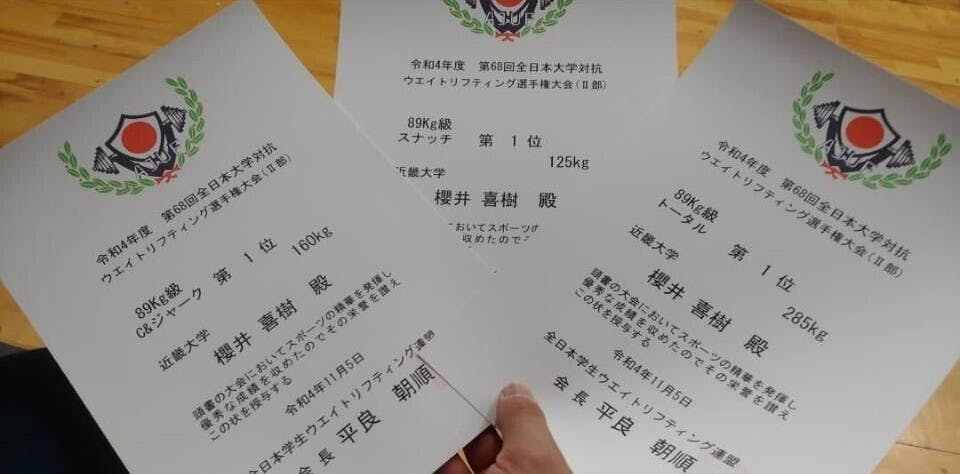 AJUF
令和4年度 第68回全日本大学対抗
ウエイトリフティング選手権大会(Ⅱ部)
89Kg級
C&ジャーク 第 1 位
160kg
近畿大学
櫻井 喜樹 殿
頭書の大会においてスポーツの精華を発揮し
優秀な成績を収めたのでその栄誉を讃え
この状を授与する
令和4年11月5日
全日本学生ウエイトリフティング連盟
会長 平良 朝順
AJUF
令和4年度 第68回全日本大学対抗
ウエイトリフティング選手権大会(Ⅱ部)
89Kg級
スナッチ 第 1 位
125kg
近畿大学
櫻井 喜樹 殿
においてスポーツの
収めたのでそ
AJUF
令和4年度 第68回全日本大学対抗
ウエイトリフティング選手権大会(Ⅱ部)
89Kg級
トータル 第 1 位
285kg
近畿大学
櫻井 喜樹 殿
頭書の大会においてスポーツの精華を発揮し
優秀な成績を収めたのでその栄誉を讃え
この状を授与する
令和4年11月5日
全日本学生ウエイトリフティング連盟
会長 平良 朝順